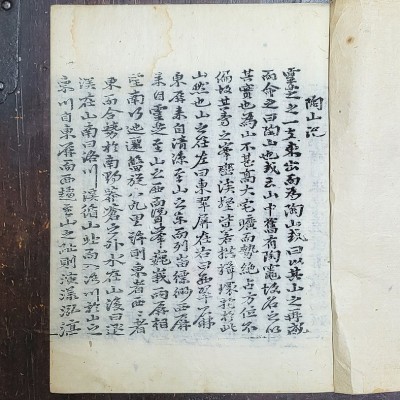 陶山記
靈芝之一支東出而為陶山或曰以其山之再成
而命之曰陶山也或云山中舊有陶竈故名之以
其實也為山不甚高大宅曠而勢絶占方位不
偏故其旁之峯巒溪壑皆若拱揖環抱於此
山然也山之在左曰東翠屏在右曰西翠屏
東屏來自清凉至山之東而列岫縹緲西屏
來自靈芝至山之西而聳峯巍峨兩屏相
望南行迤邐盤旋八九里許則東者西西者
東而合勢於南野莽蒼之外水在山後曰退
溪在山南曰洛川溪循山北而入洛川於山之
東川自東屏而西趨至山之趾則演漾泓渟